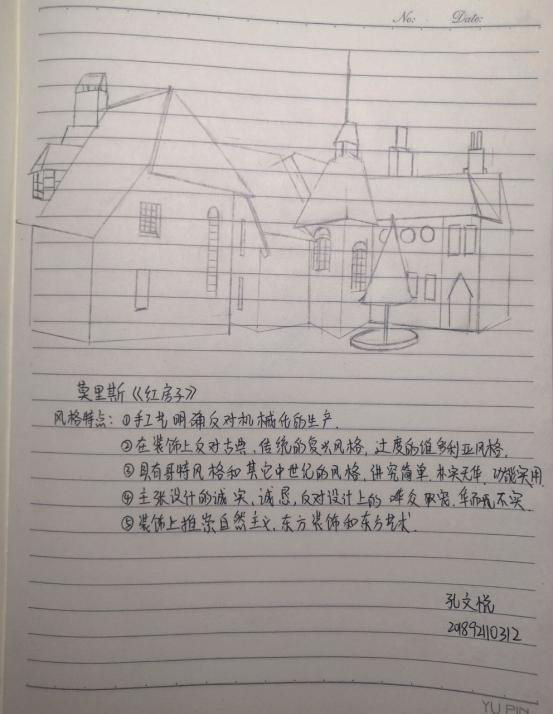 No: Date:
莫里斯《红房子》
风格特点：①手工艺明确反对机械化的生产.
②在装饰上反对古典、传统的复兴风格，过度的维多利亚风格.
③具有哥特风格和其它中世纪的风格，讲究简单、朴实无华、功能实用.
④主张设计的诚实、诚恳，反对设计上的哗众取宠、华而不实.
⑤装饰上推崇自然主义、东方装饰和东方艺术.
孔文悦
201892110312
YU PIN